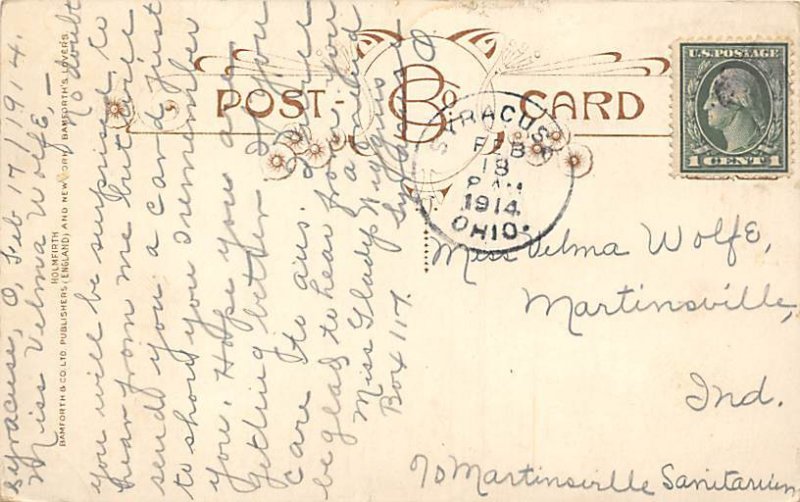 POST-
Bo
CARD
U.S. POSTAGE
1 CENT 1
SYRACUSE
FEB
18
1914
OHIO.
Syracuse, O, Feb 17/1914.
Miss Velma Wolfe, —
No doubt
you will be surprised to
hear from me but will
send you a card just
to show you I remember
you. Hope you are
getting better. If you
care to ans. I will
be glad to hear from you
Miss Gladys
Box 117. Syracuse O
HOLMFIRTH
BAMFORTH & CO. LTD. PUBLISHERS (ENGLAND) AND NEW YORK BAMFORTH'S LOVERS.
Miss Velma Wolfe,
Martinsville,
Ind.
% Martinsville Sanitarium